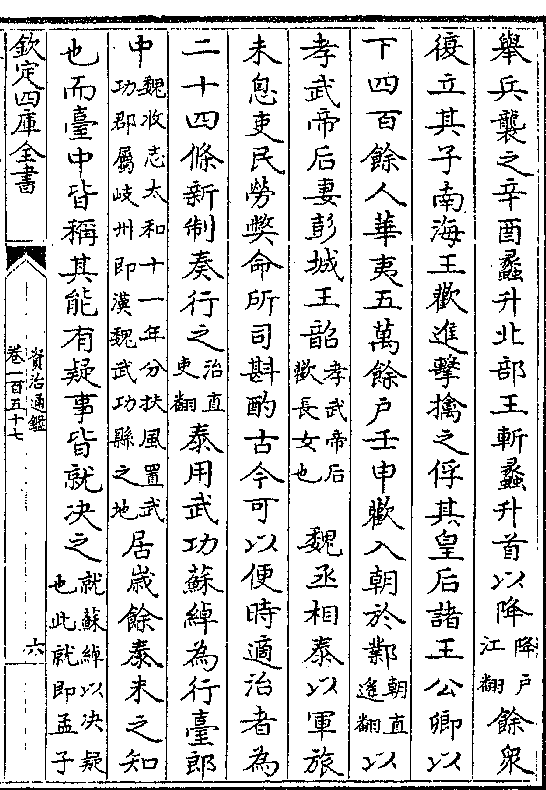 舉兵襲之辛酉蠡升北部王斬蠡升首以降降戶江翻餘衆
復立其子南海王歡進擊擒之俘其皇后諸王公卿以
下四百餘人華夷五萬餘戶壬申歡入朝於鄴朝直遙翻以
孝武帝后妻彭城王韶孝武帝后歡長女也 魏丞相泰以軍旅
未息吏民勞獘命所司斟酌古今可以便時適治者為
二十四條新制奏行之治直吏翻泰用武功蘇綽為行臺郎
中魏收志太和十一年分扶風置武功郡屬岐州即漢魏武功縣之地居歲餘泰未之知
也而臺中皆稱其能有疑事皆就决之就蘇綽以决疑也此就即孟子
欽定四庫全書
資治通鑑
卷一百五十七
六